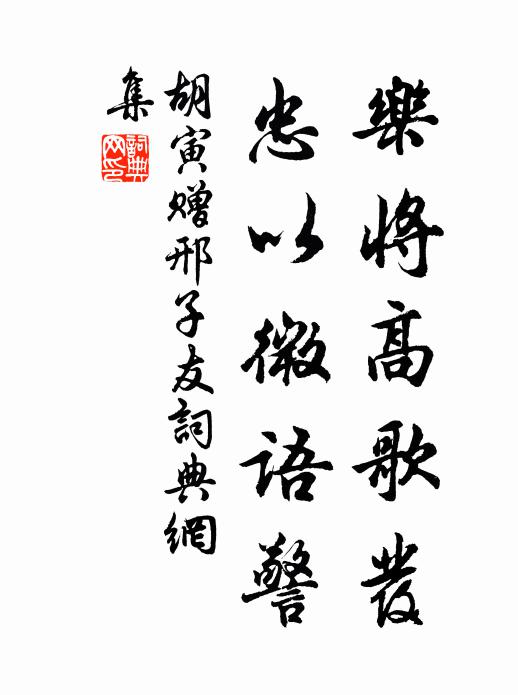 樂將高歌發
忠以微語警
胡寅贈邢子友詞典網
集
詞典
网印